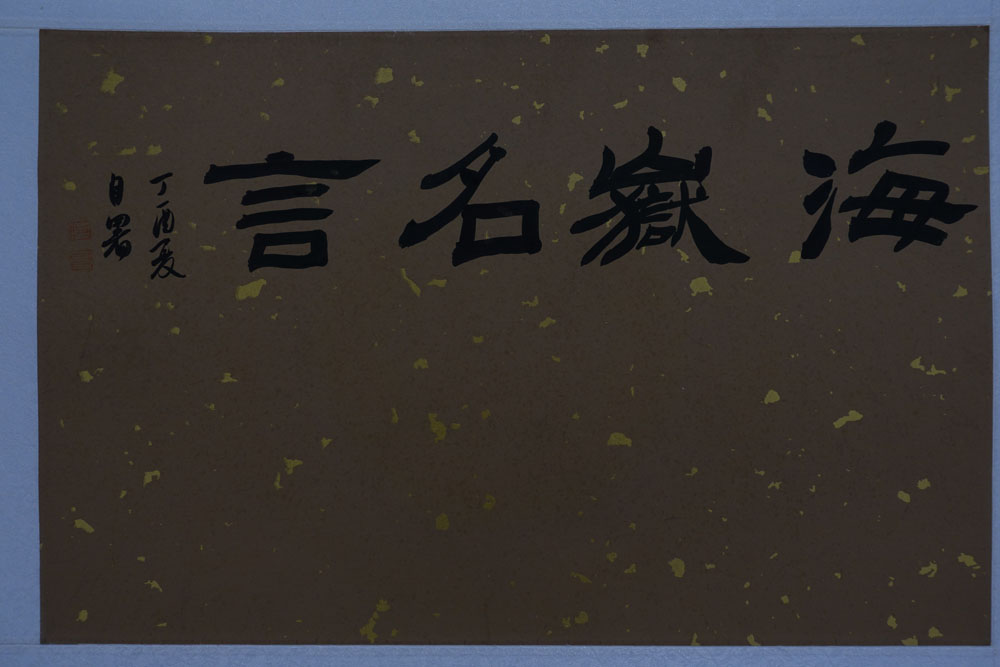 海嶽名言
丁酉夏
自署